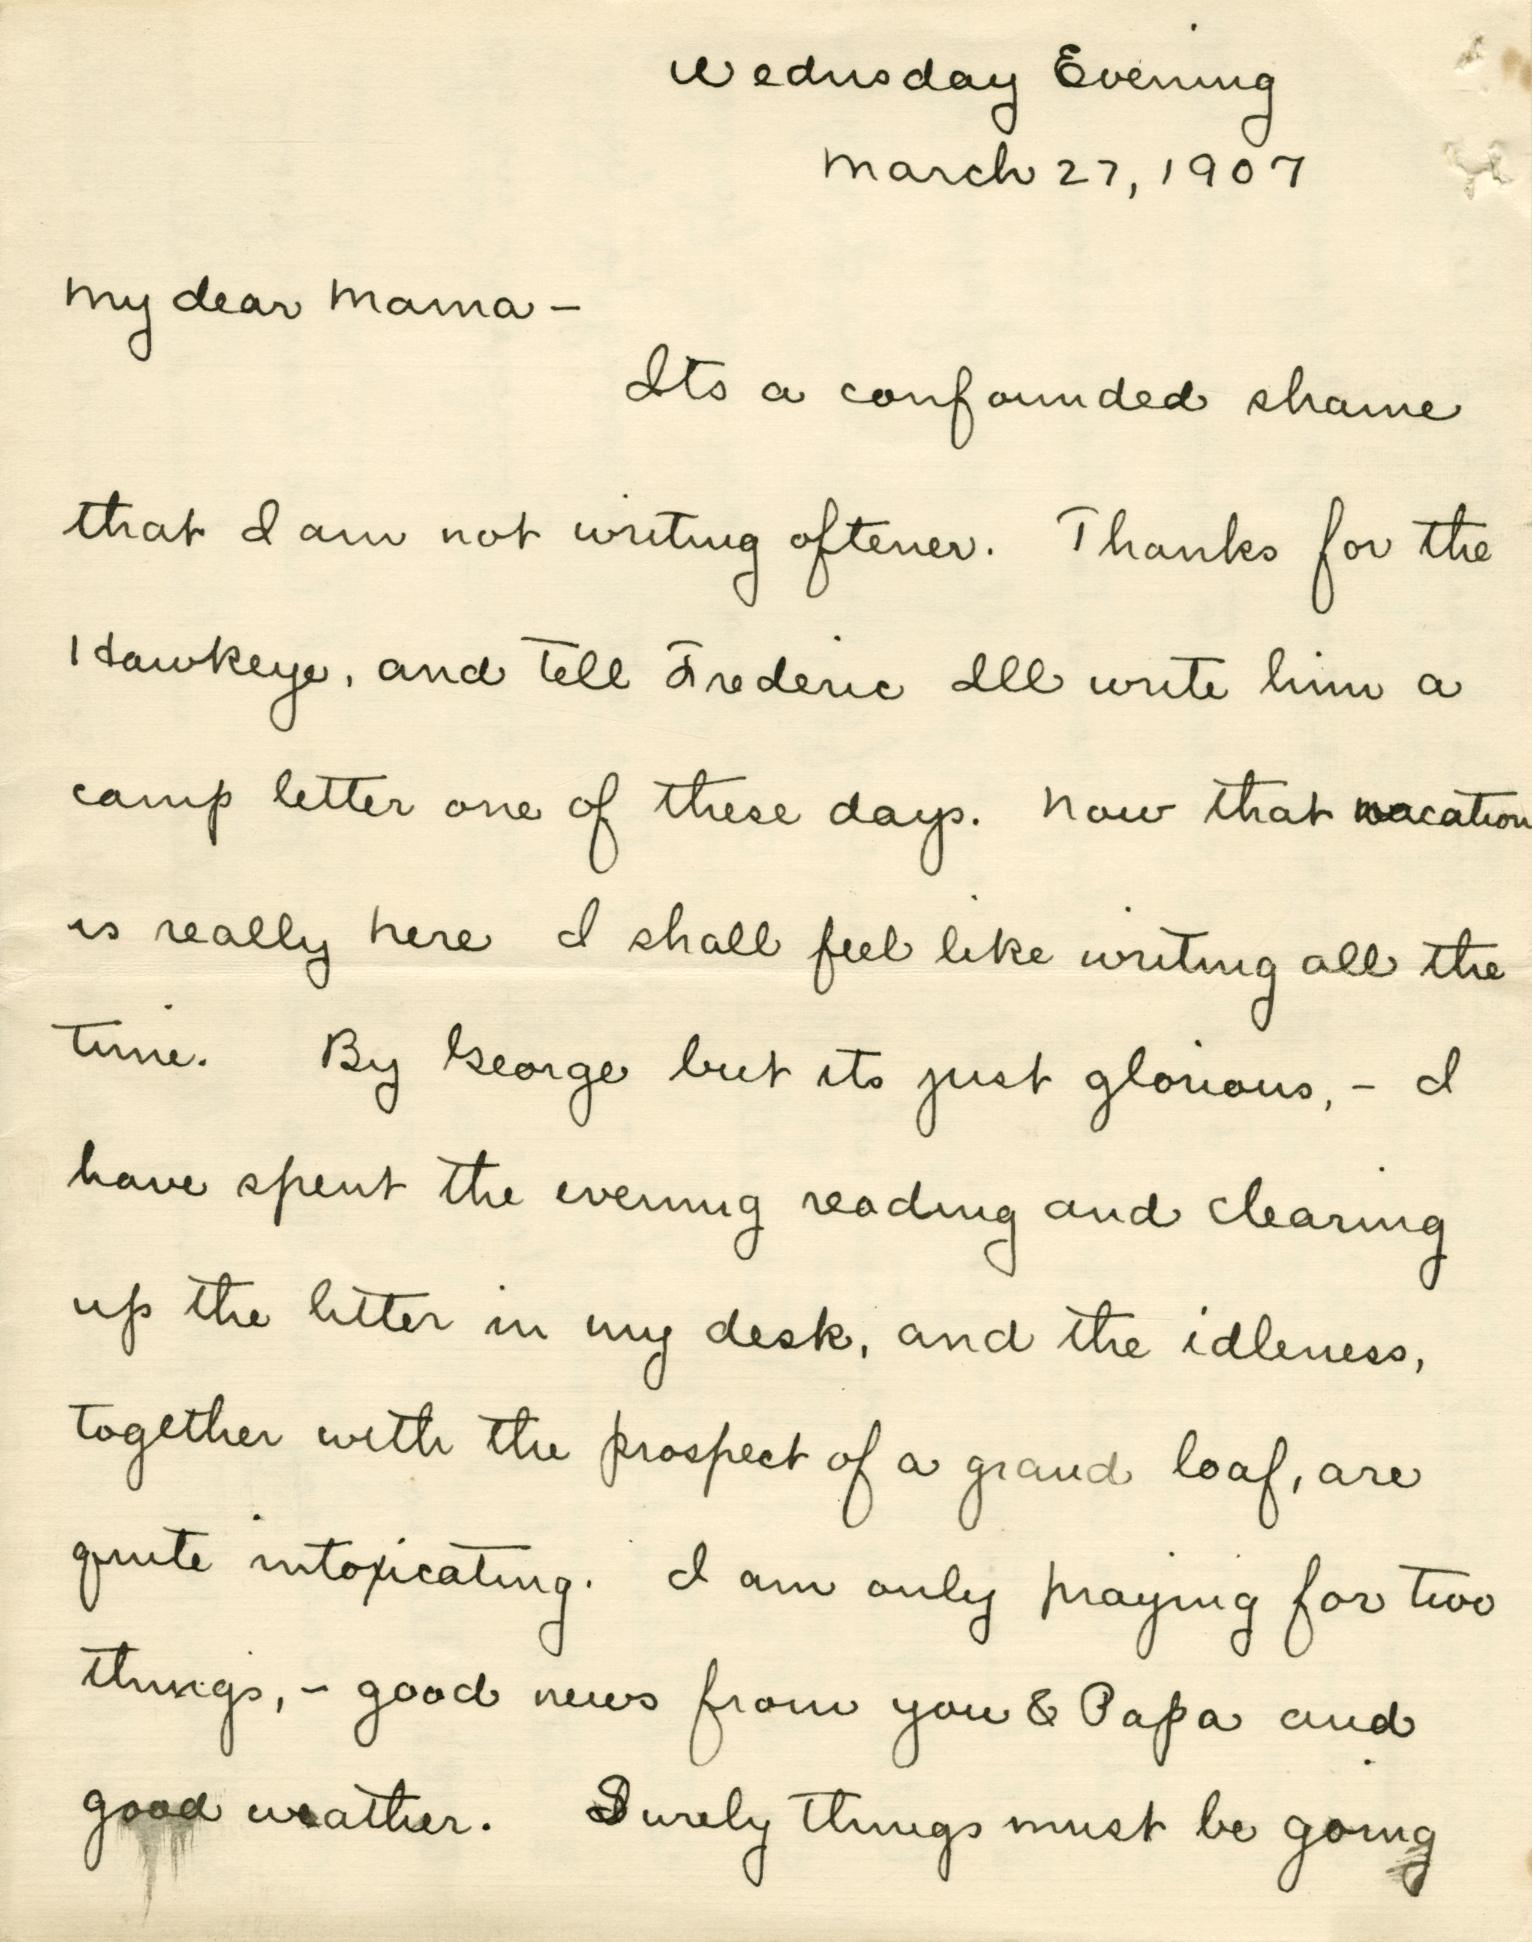 Wednsday Evening
March 27, 1907
My dear Mama –
Its a confounded shame
that I am not writing oftener. Thanks for the
Hawkeye, and tell Frederic Ill write him a
camp letter one of these days. Now that vacation
is really here I shall feel like writing all the
time. By George but its just glorious, – I
have spent the evening reading and clearing
up the litter in my desk, and the idleness,
together with the prospect of a grand loaf, are
quite intoxicating. I am only praying for two
things, – good news from you & Papa and
good weather. Surely things must be going